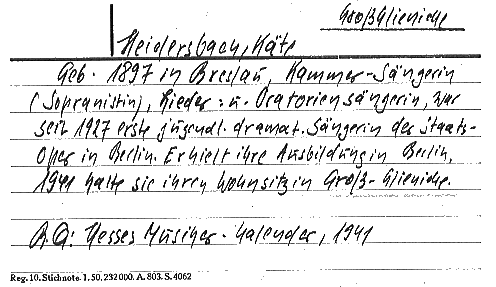 Groß Glienicke
Heidersbach, Käte
Geb. 1897 in Breslau, Kammer-Sängerin
(Sopranistin), Lieder- u. Oratoriensängerin, war
seit 1927 erste jugendl. dramat. Sängerin der Staats-
Oper in Berlin. Erhielt ihre Ausbildung in Berlin,
1941 hatte sie ihren Wohnsitz in Groß-Glienicke.
Hesses Musiker-Kalender, 1941
Reg. 10. Stichnote. 1. 50. 232000. A. 803. S. 4062